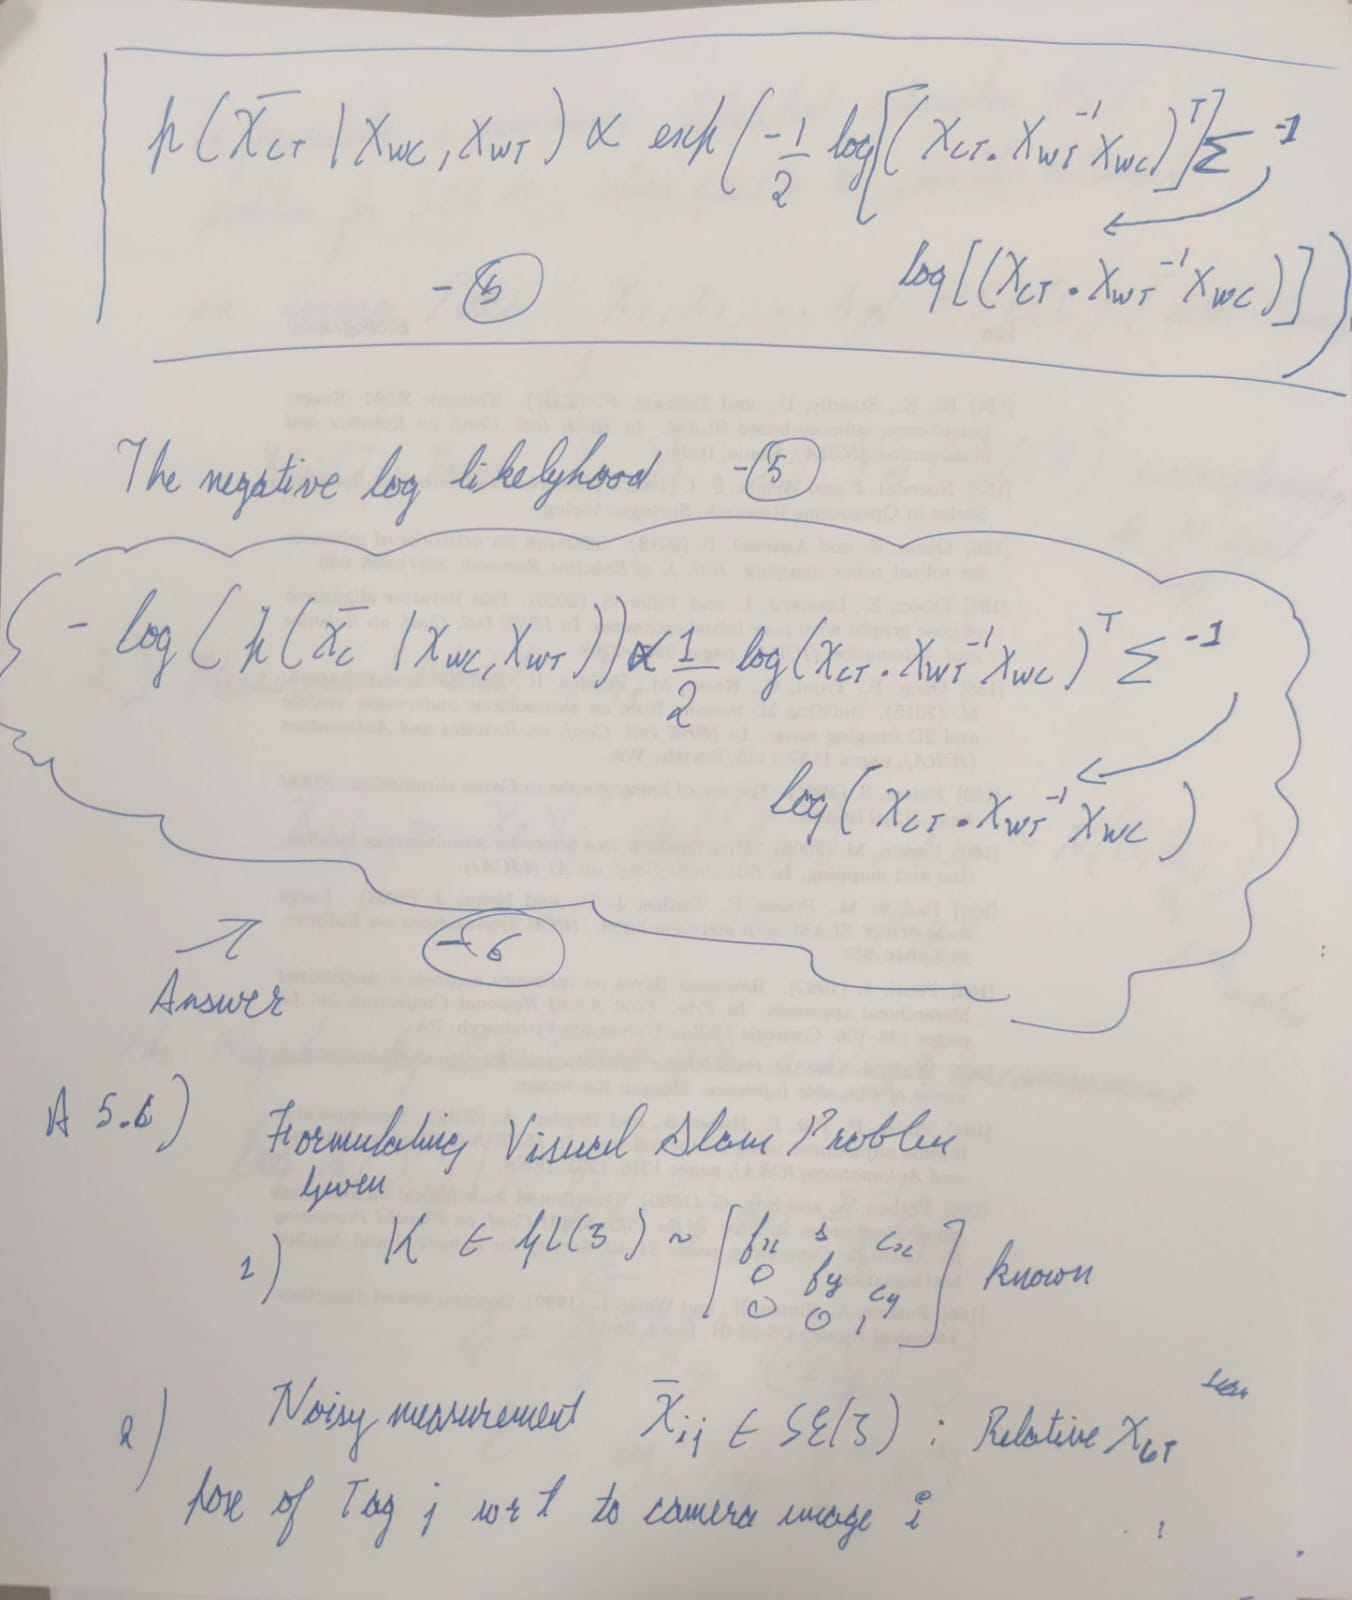 p(X̄_CT | X_WC, X_WT) ∝ exp(-1/2 log[(X_CT · X_WT^-1 X_WC)^T] Σ^-1
- (5) log[(X_CT · X_WT^-1 X_WC)])
The negative log likelyhood - (5)
- log(p(X̄_C | X_WC, X_WT)) ∝ 1/2 log(X_CT · X_WT^-1 X_WC)^T Σ^-1
log(X_CT · X_WT^-1 X_WC)
- 6
Answer
A 5.6) Formulating Visual Slam Problem
Given
1) K ∈ GL(3) ~ [fx s cx
0 fy cy
0 0 1] known
2) Noisy measurement X̄_ij ∈ SE(3) : Relative X_CT
pose of Tag j wrt to camera image i